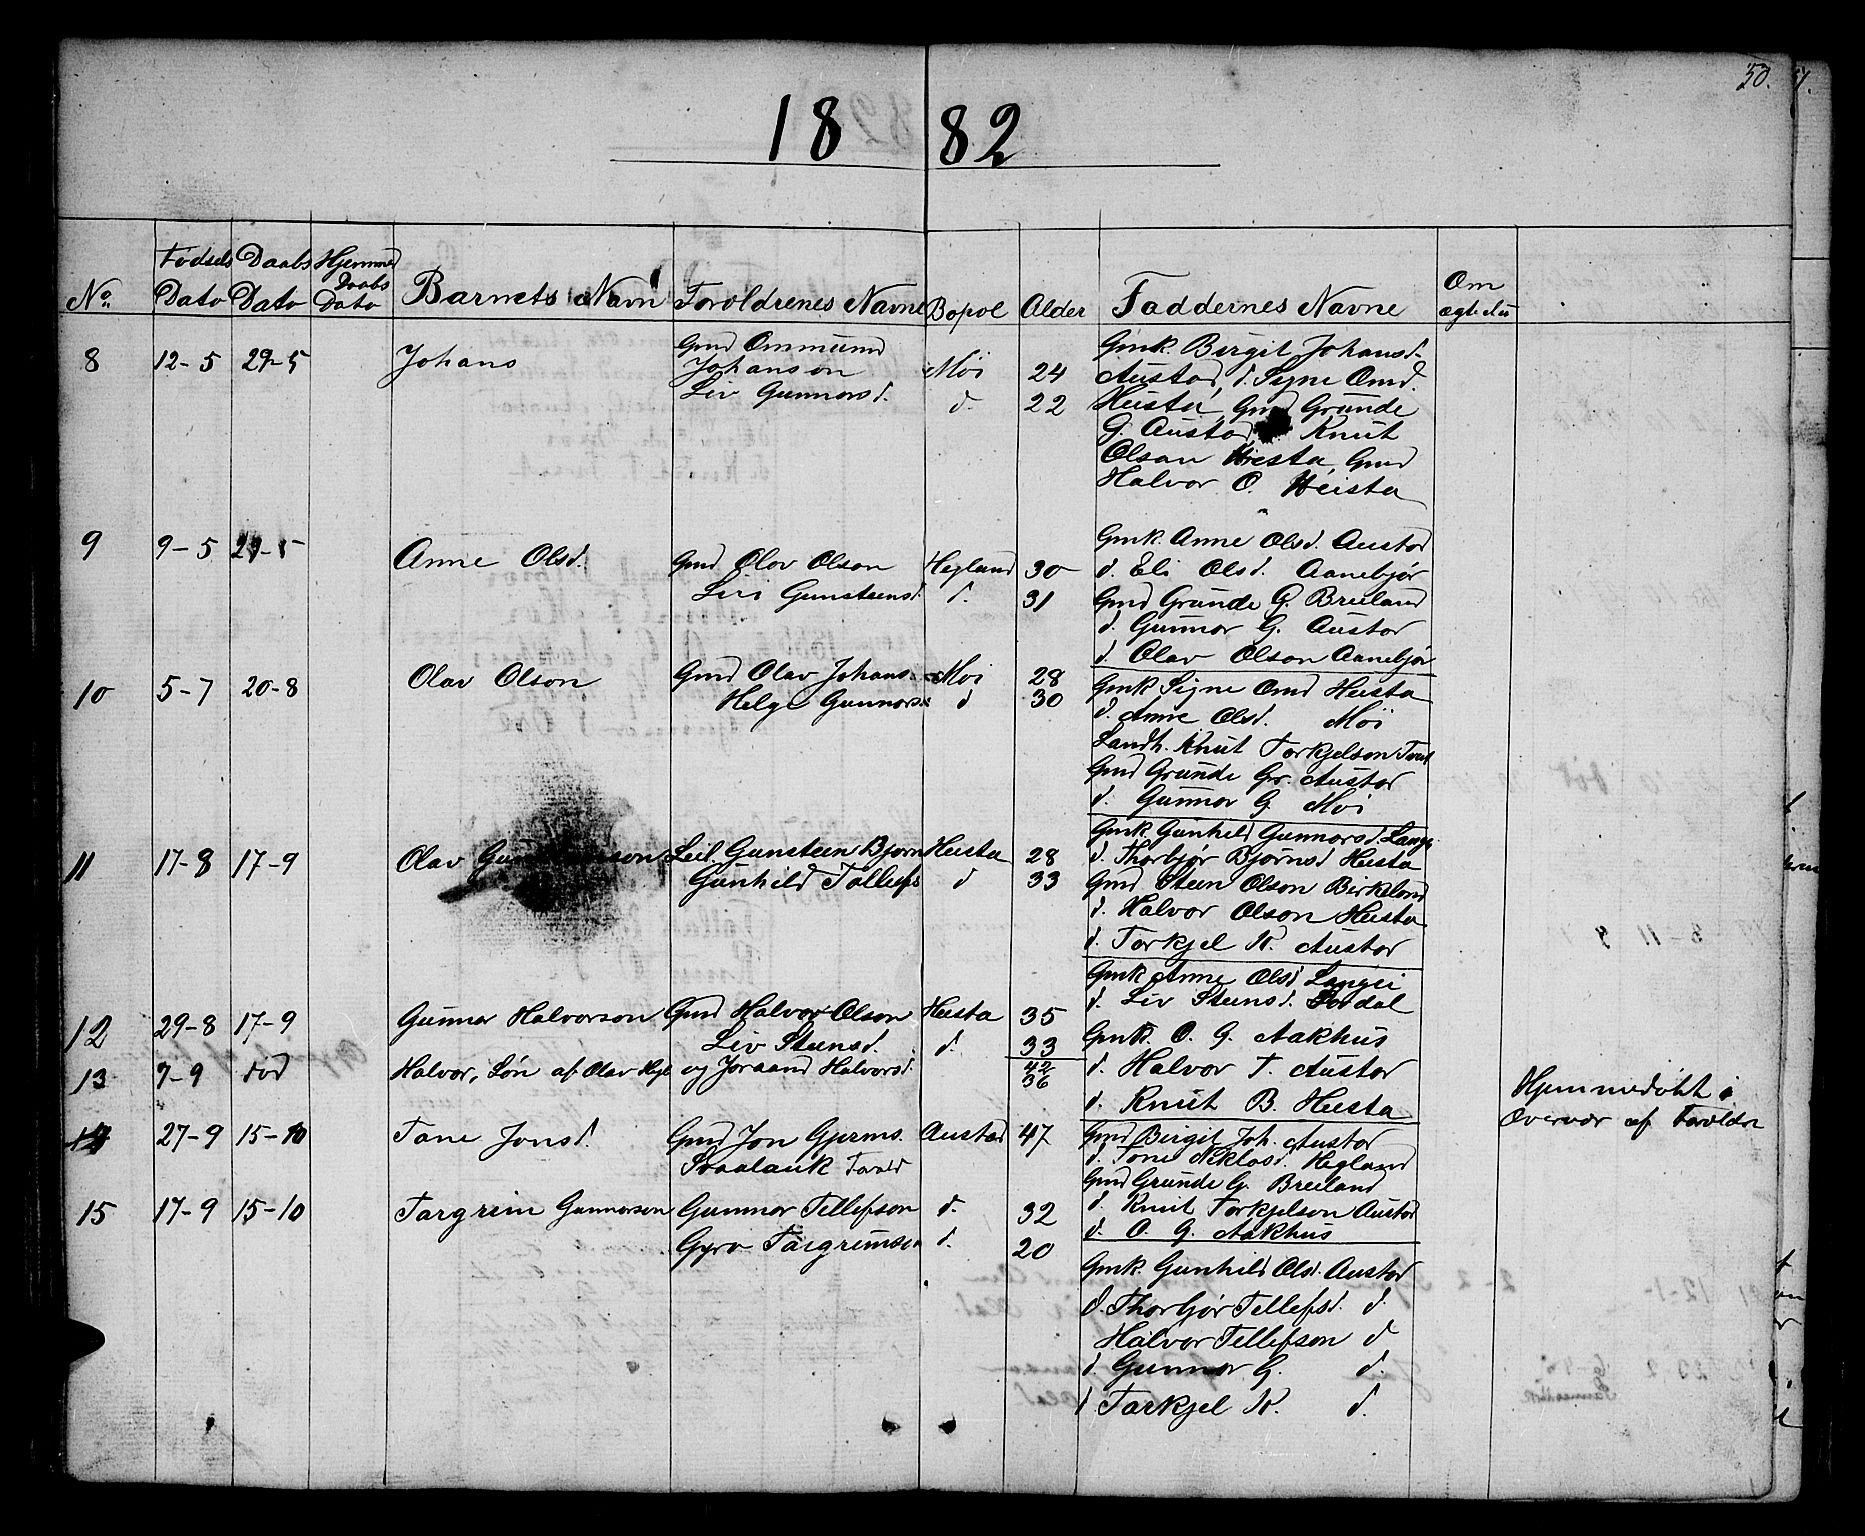 50. 51.
1882
No. Fødsels Dato Daabs Dato Hjemme Daabs Dato Barnets Navn Forældrenes Navne Bopæl Alder Faddernes Navne Om ægte &
8 12-5 29-5 Johans Gmd Ommund Johanson Møi 24 Gmk. Birgit Johansd.
Liv Gunnarsd. d. 22 Austad, d. Signe Omd.
Heistá, Gmd Grunde
G. Austad, Knut
Olson Hiesta, Gmd
Halvor O. Heista
9 9-5 29-5 Anne Olsd. Gmd Olav Olson Hegland 30 Gmk. Anne Olsd. Austad
Livi Gunsteensd. d. 31 d. Eli Olsd. Aanebjør
Gmd Grunde G. Breiland
d. Gunnar G. Austad
d. Olav Olson Aanebjør
10 5-7 20-8 Olav Olson Gmd Olav Johans. Moi 28 Gmk Signe Omd Heista
Helge Gunnars d 30 d. Anne Olsd. Møi
Landh. Knut Torkjelson Tveit
Gmd Grunde Gr. Austad
d. Gunnar G. Moi
11 17-8 17-9 Olav Leil. Gunsteen Bjorn Heista 28 Gmk. Gunhild Gunnarsd. Langei
Gunhild Tollefs d 33 d. Thorbjør Bjørnsd Heista
Gmd Steen Olson Birkeland
d. Halvor Olson Heista
d. Torkjel K. Austad
12 29-8 17-9 Gunnar Halvorson Gmd Halvor Olson Heista 35 Gmk Anne Olsd Langei
Liv Steensd. d. 33 d. Liv Steensd.
Gmk. O. G. Aakhus
d. Halvor T. Austad
d. Knut B. Heista
13 7-9 død Halvor, Søn af Olav Hgl og Joraand Halvorsd. 42 36 Hjemmedøbt i
Overvær af Foræld
14 27-9 15-10 Tone Jonsd. Gmd Jon Gjerms. Austad 47 Gmd Birgit Joh. Austad
Svalauk d. Tone Niklosd. Hegland
Gmd Grunde G. Breiland
d. Knut Torkjelson Austad
d. O. G. Aakhus
15 17-9 15-10 Targrim Gunnarson Gunnar Tellefson d. 32 Gmk. Gunhild Olsd. Austad
Gyro Targrims d. 20 d. Thorbjør Tellefsd. d.
Halvor Tellefson d
d. Gunnar G. d.
d Tarkjel K. d.